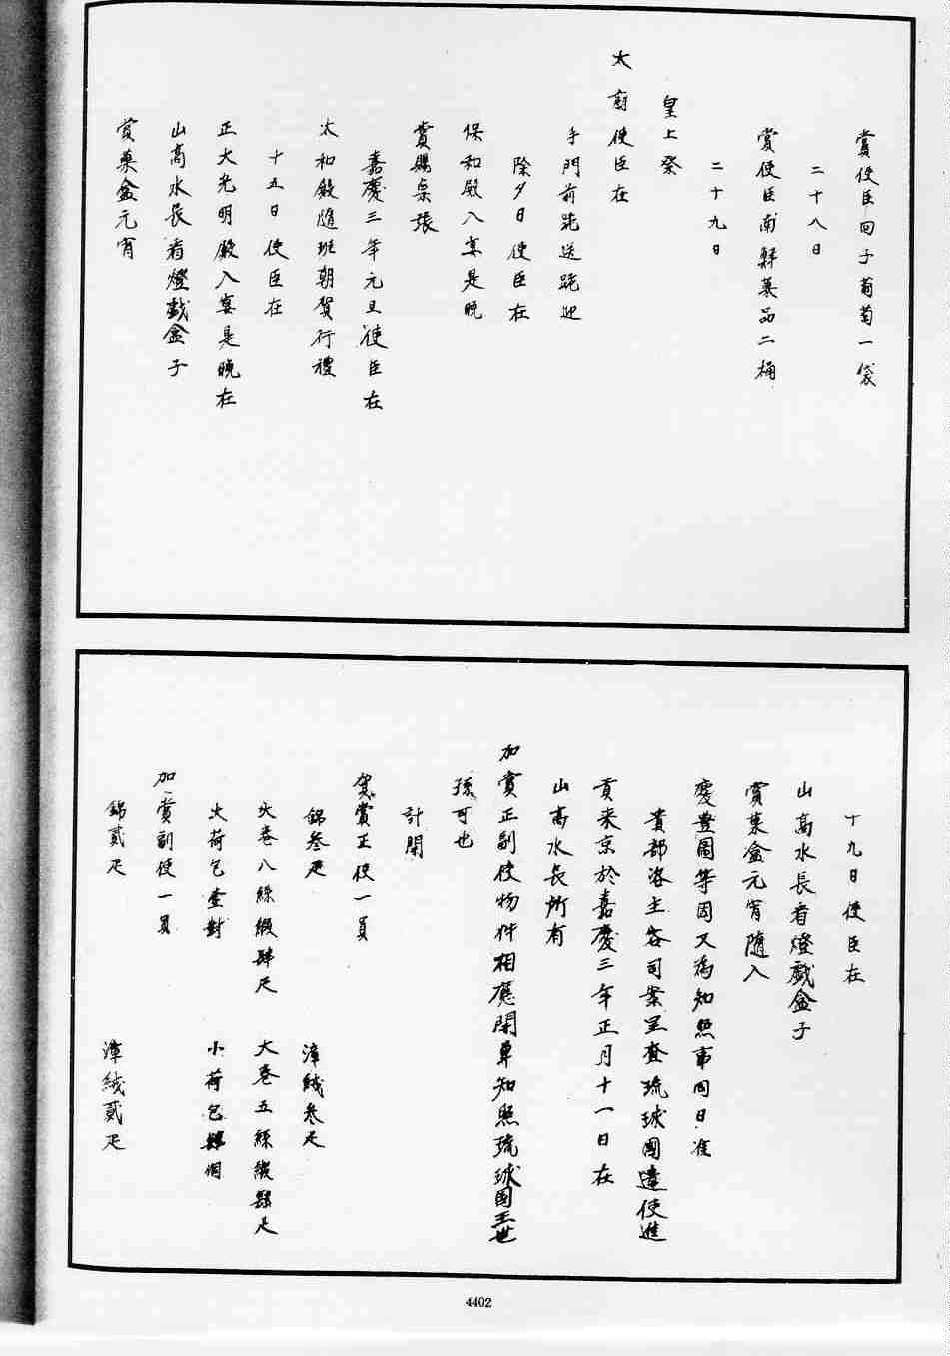 賞使臣回子葡萄一袋
二十八日
賞使臣南鮮菓品二桶
二十九日
皇上祭
太廟使臣在
午門前跪送跪迎
除夕日使臣在
保和殿入宴是晚
賞賜桌張
嘉慶三年元旦使臣在
太和殿隨班朝賀行禮
十五日使臣在
正大光明殿入宴是晚在
山高水長看燈戲盒子
賞菓盒元宵
十九日使臣在
山高水長看燈戲盒子
賞菓盒元宵隨入
慶豐圖等因又為知照事同日准
貴部洛主客司案呈查琉球國遣使進
貢來京於嘉慶三年正月十一日在
山高水長所有
加賞正副使物件相應開單知照琉球國王世
孫可也
計開
加賞正使一員
錦叁疋 漳絨叁疋
大卷八絲緞肆疋 大卷五絲緞肆疋
大荷包壹對 小荷包肆個
加賞副使一員
錦貳疋 漳絨貳疋
4402